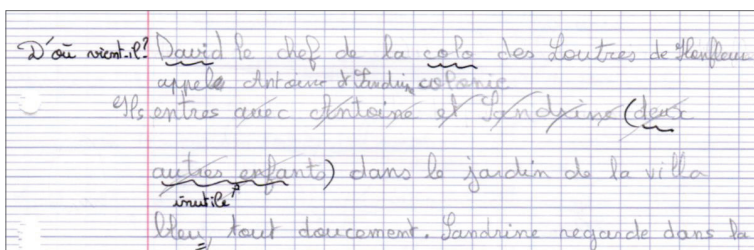 D'où vient-il? David le chef de la colo des Loutres de Honfleur
appele Antoine & Sandrine colonie
Ils entres avec Antoine et Sandrine (deux
autres enfants) dans le jardin de la villa
inutile?
bleu, tout doucement. Sandrine regarde dans la